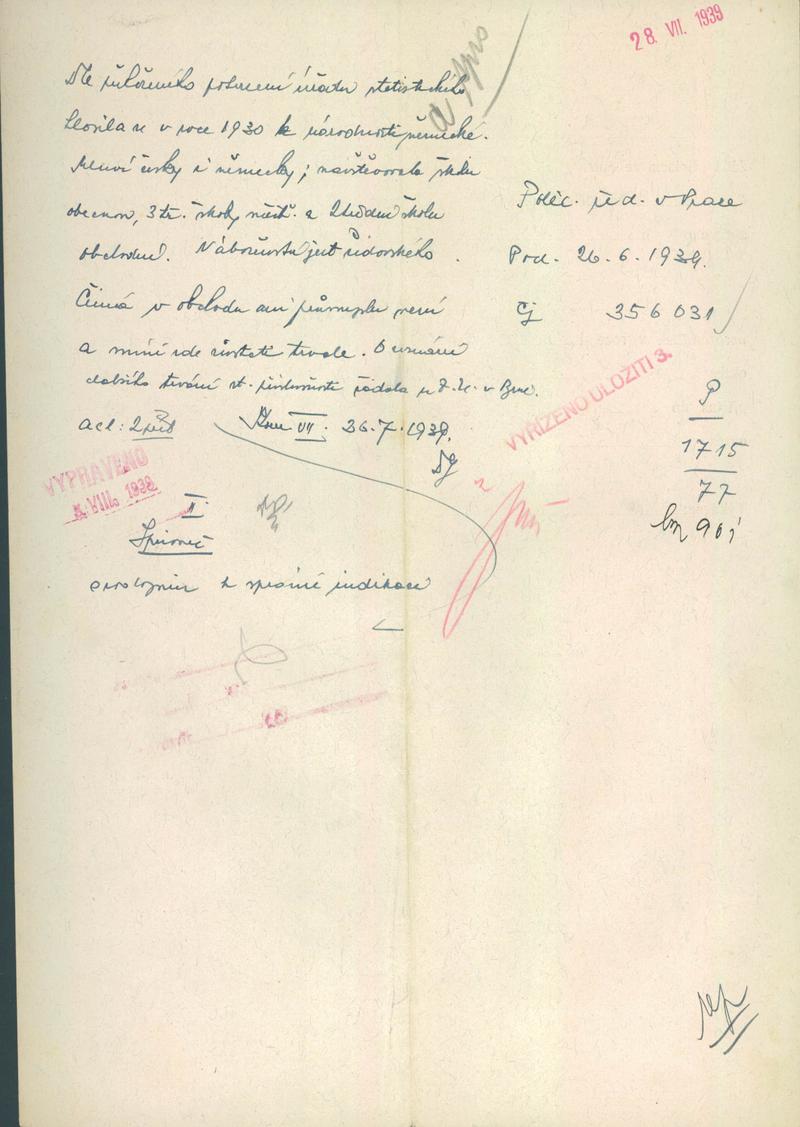 28. VII. 1939
Dle přiloženého potvrzení úřadu statistického
hlásila se v roce 1930 k národnosti německé.
Mluví česky i německy; navštěvovala školu
obecnou, 3 tř. školy měšť. a 2letou školu
obchodní. Náboženství jest židovského.
Činná v obchodu ani průmyslu není
a míní zde zůstati trvale. O uznání
dalšího trvání st. příslušnosti žádala u v Brně.
VII. 26.7.1939.
Polic. řed. v Praze
Pod. 26.6.1939.
Čj 356 031
VYŘÍZENO ULOŽITI 3.
P
1715
77
901
VYPRAVENO
VIII. 1939
II.
k správné indikaci